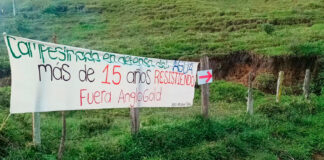 Campesinado en defensa del AGUA
más de 15 años RESISTIENDO
Fuera AngloGold